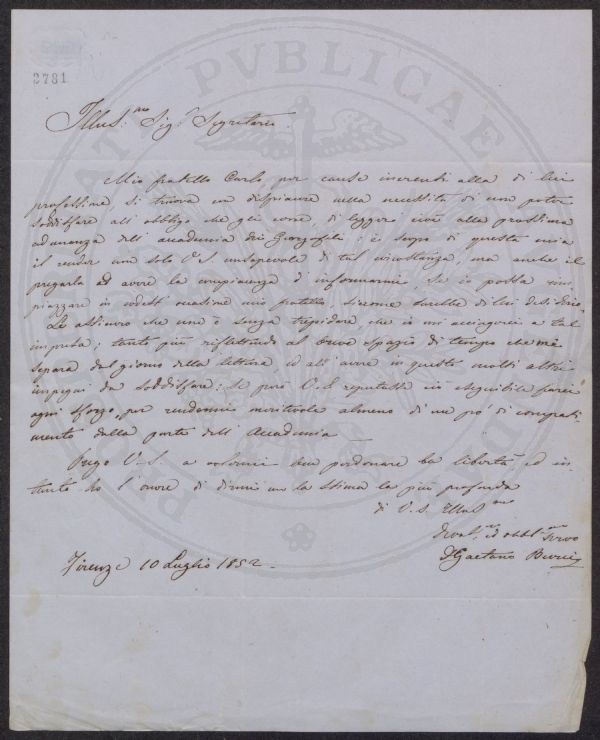 PUBLICAE
2781
Illus.mo Sig.r Segretario.
Mio fratello Carlo, per cause inerenti alla di lui
professione, si trova con dispiacere nella necessità di non poter
soddisfare all'obbligo che gli corre, di leggere cioè alla prossima
adunanza dell'accademia dei Georgofili; è scopo di questa mia
il render non solo V.S. consapevole di tal circostanza, ma anche il
pregarla ad avere la compiacenza d'informarmi, se io possa rim-
piazzare in codest'occasione mio fratello, siccome sarebbe di lui desiderio.
Le assicuro che non è senza trepidare, che io mi accingerei a tal
impresa; tanto più riflettendo al breve spazio di tempo che mi
separa dal giorno della lettura, ed all'avere in questo molti altri
impegni da soddisfare; se però V.S. reputasse ciò eseguibile farei
ogni sforzo, per rendermi meritevole almeno di un po' di compati-
mento dalla parte dell'Accademia.
Prego V.S. a volermi ben perdonare la libertà, ed in-
tanto ho l'onore di dirmi con la stima la più profonda
di V.S. Illus.ma
Dev.mo ed obbl.mo Servo
D Gaetano
Firenze 10 Luglio 1852.